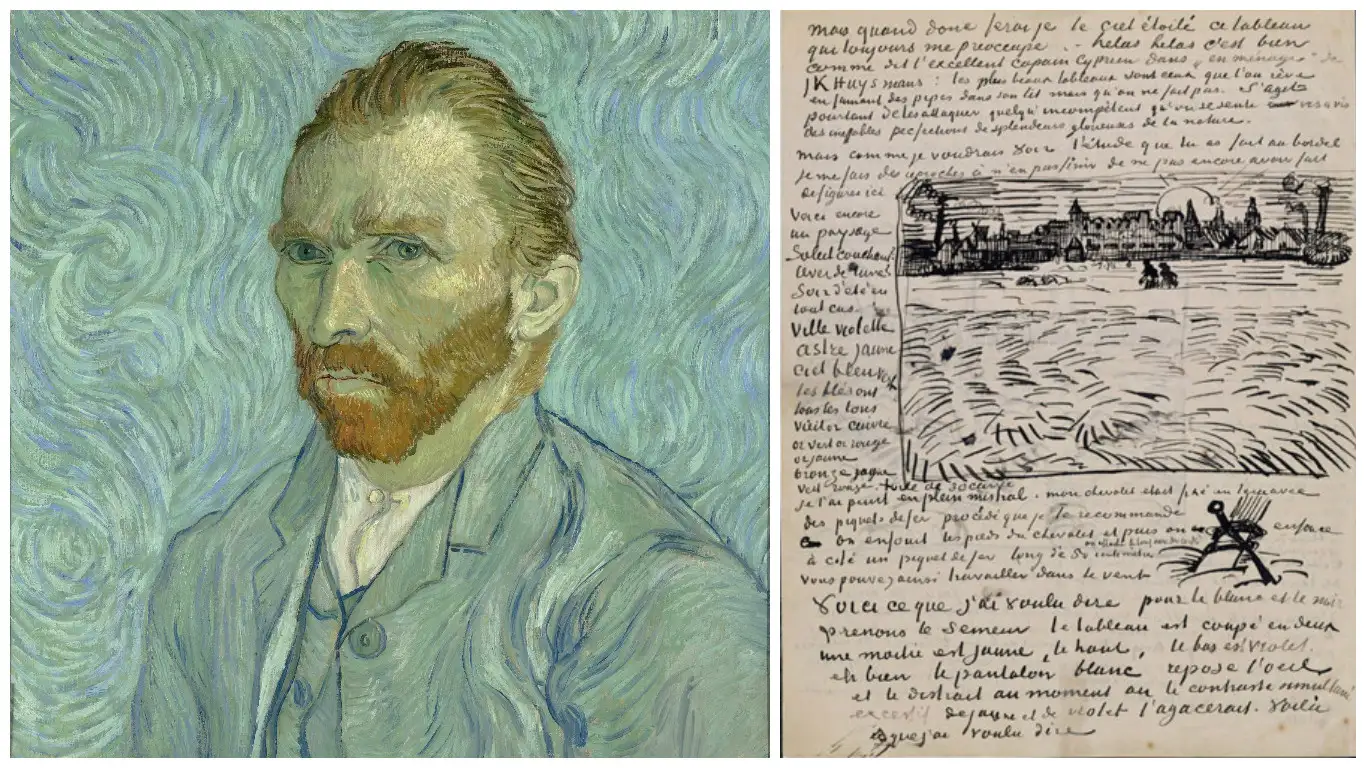 mais quand donc ferai je le ciel étoilé ce tableau
qui toujours me préoccupe . - helas helas c'est bien
comme dit l'excellent copain Cyprien dans „ en ménage " de
J K Huysmans : les plus beaux tableaux sont ceux que l'on rêve
en fumant des pipes dans son lit mais qu'on ne fait pas. S'agit
pourtant de les attaquer quelqu'incompétent qu'on se sente vis à vis
des ineffables perfections de splendeurs glorieuses de la nature.
mais comme je voudrais voir l'étude que tu as fait au bordel
je me fais des reproches à n'en pas finir de ne pas encore avoir fait
de figures ici
Voici encore
un paysage
Soleil couchant?
lever de lune?
Soir d'été en
tout cas.
Ville violette
astre jaune
ciel bleu vert
les blés ont
tous les tons
vieil or cuivre
or vert or rouge
or jaune
bronze jaune
vert rouge. toile de 30 carrée
je l'ai peint en plein mistral. mon chevalet était fixé en terre avec
des piquets de fer procédé que je te recommande
on enfouit les pieds du chevalet et puis on enfonce
à côté un piquet de fer long de 50 centimètres
vous pouvez ainsi travailler dans le vent
Voici ce que j'ai voulu dire pour le blanc et le noir
prenons le Semeur le tableau est coupé en deux
une moitié est jaune, le haut, le bas est violet.
eh bien le pantalon blanc repose l'oeil
et le distrait au moment où le contraste simultané
excessif de jaune et de violet l'agacerait. Voilà
ce que j'ai voulu dire